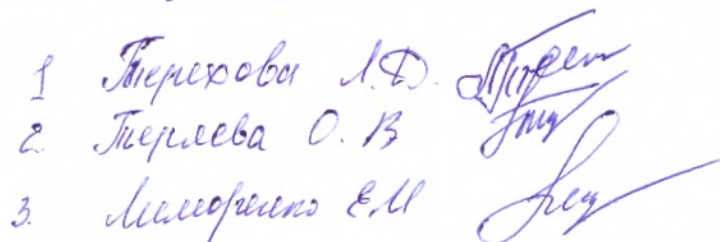 1 Терехова Л.Д.
2. Теряева О.В
3. Лиморенко ЕМ